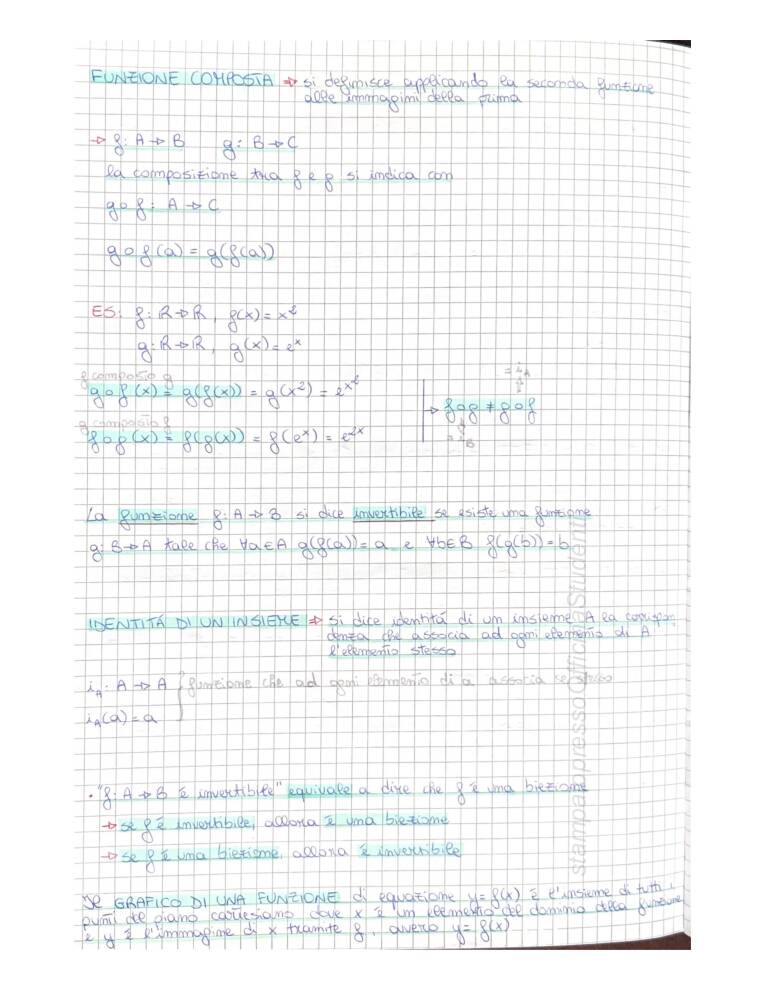 FUNZIONE COMPOSTA → si definisce applicando la seconda funzione
alle immagini della prima
→ f: A → B g: B → C
la composizione tra f e g si indica con
g∘f: A → C
g∘f(a) = g(f(a))
ES: f: R→R, f(x) = x²
g: R→R, g(x) = eˣ
f composto g
g∘f(x) = g(f(x)) = g(x²) = e^x²
g composto f
f∘g(x) = f(g(x)) = f(eˣ) = e^2x
= i_A
→ f∘g ≠ g∘f
= i_B
La funzione f: A → B si dice invertibile se esiste una funzione
g: B→A tale che ∀a∈A g(f(a)) = a e ∀b∈B f(g(b)) = b
IDENTITÁ DI UN INSIEME → si dice identitá di un insieme A la corrispon
denza che associa ad ogni elemento di A
l'elemento stesso
i_A: A → A } funzione che ad ogni elemento di a associa se stesso
i_A(a) = a
• "f: A → B è invertibile" equivale a dire che f è una biezione
→ se f è invertibile, allora è una biezione
→ se f è una biezione, allora è invertibile
GRAFICO DI UNA FUNZIONE di equazione y = f(x) è l'insieme di tutti i
punti del piano cartesiano dove x è un elemento del dominio della funzione
e y è l'immagine di x tramite f, ovvero y = f(x)
stampatopressoOfficinaStudenti